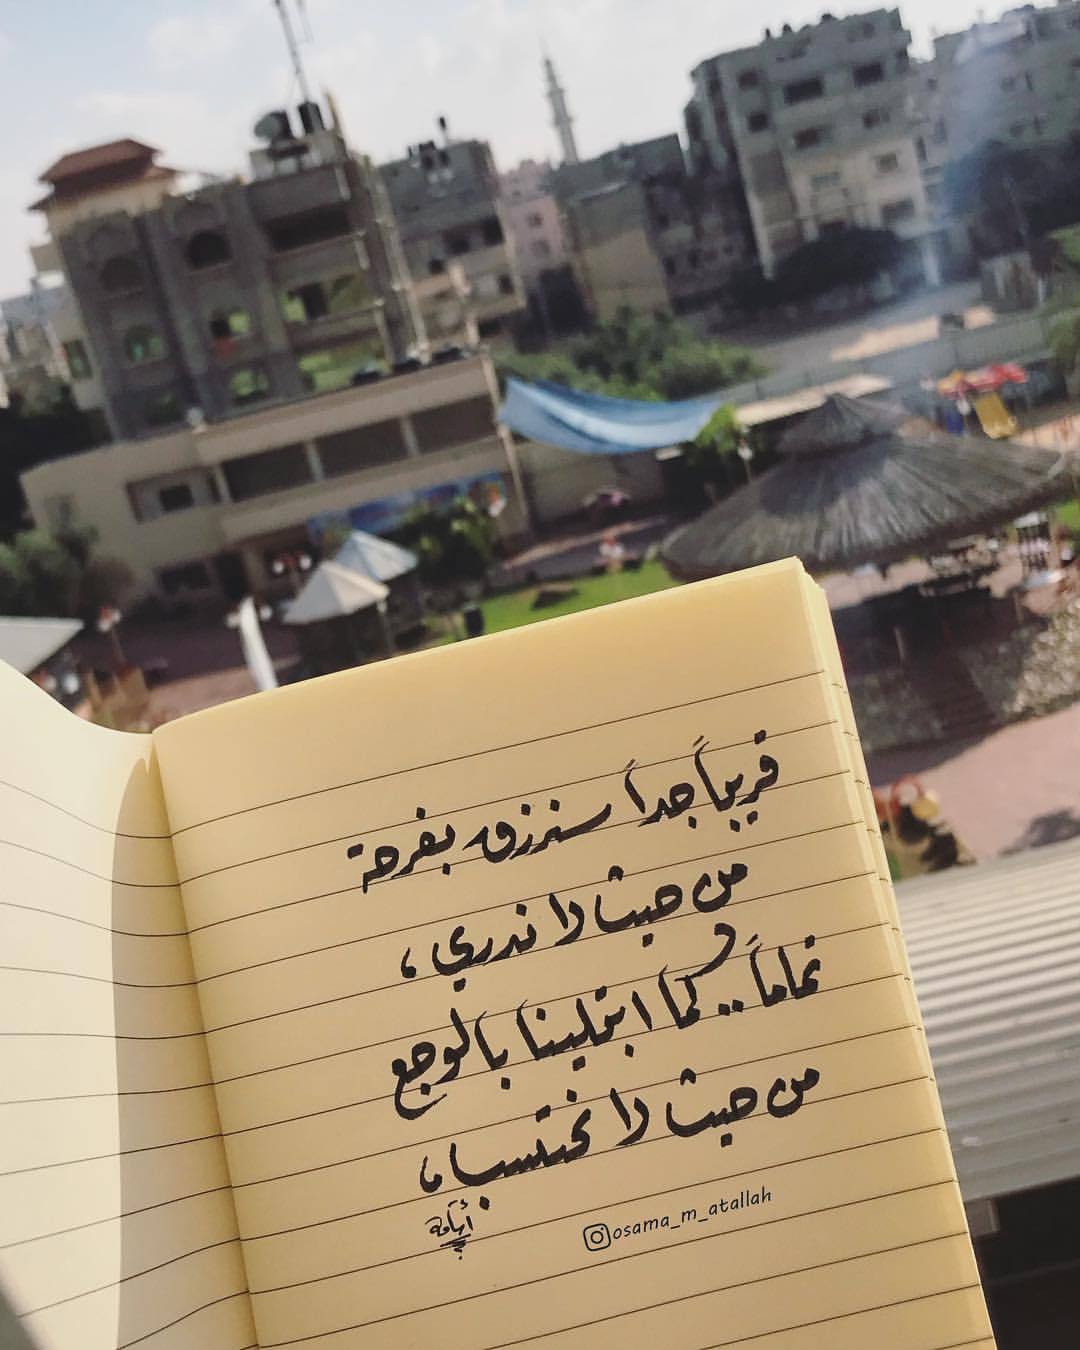 قريباً جداً سنرزق بفرحة
من حيث لا ندري ،
تماماً .. كما ابتلينا بالوجع
من حيث لا نحتسب ،،
أسامة
osama_m_atallah